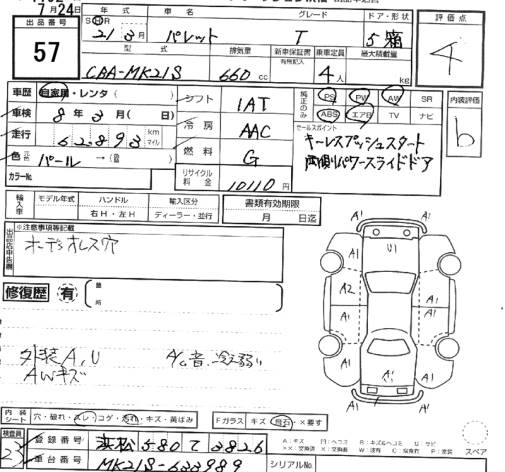 7月24日
出品番号 57
年式 車名 グレード ドア・形状 評価点
S H 21年3月 パレット T 5 箱 4
型式 排気量 新車保証書 乗車定員 最大積載量
有無記入
CBA-MK21S 660cc 4人 kg
車歴 自家用・レンタ( )
車検 8年3月( 日)
走行 62,893 km マイル
色 パール →( )
カラーNo.
シフト 1AT
冷房 AAC
燃料 G
リサイクル料金 10110円
純正のみ PS PW AW SR
ABS エアB TV ナビ
内装評価 b
セールスポイント
キーレスプッシュスタート
両側パワースライドドア
輸入車 モデル年式 ハンドル 輸入区分
年 右H・左H ディーラー・並行
書類有効期限
月 日迄
出品店申告欄 ※注意事項等記載
オーディオレス穴
修復歴 有 箇所
外装A,U A/C音.冷え弱い
AWキズ
A1 A1 U1 A1 A1 A2 A1 A1 A1 A1 A1 A1
内装シート 穴・破れ・スレ・コゲ・汚れ・キズ・黄ばみ Fガラス キズ・飛石・×要す
検査員 23
登録番号 浜松580て3826
車台番号 MK21S-623989 シリアルNo.
スペア